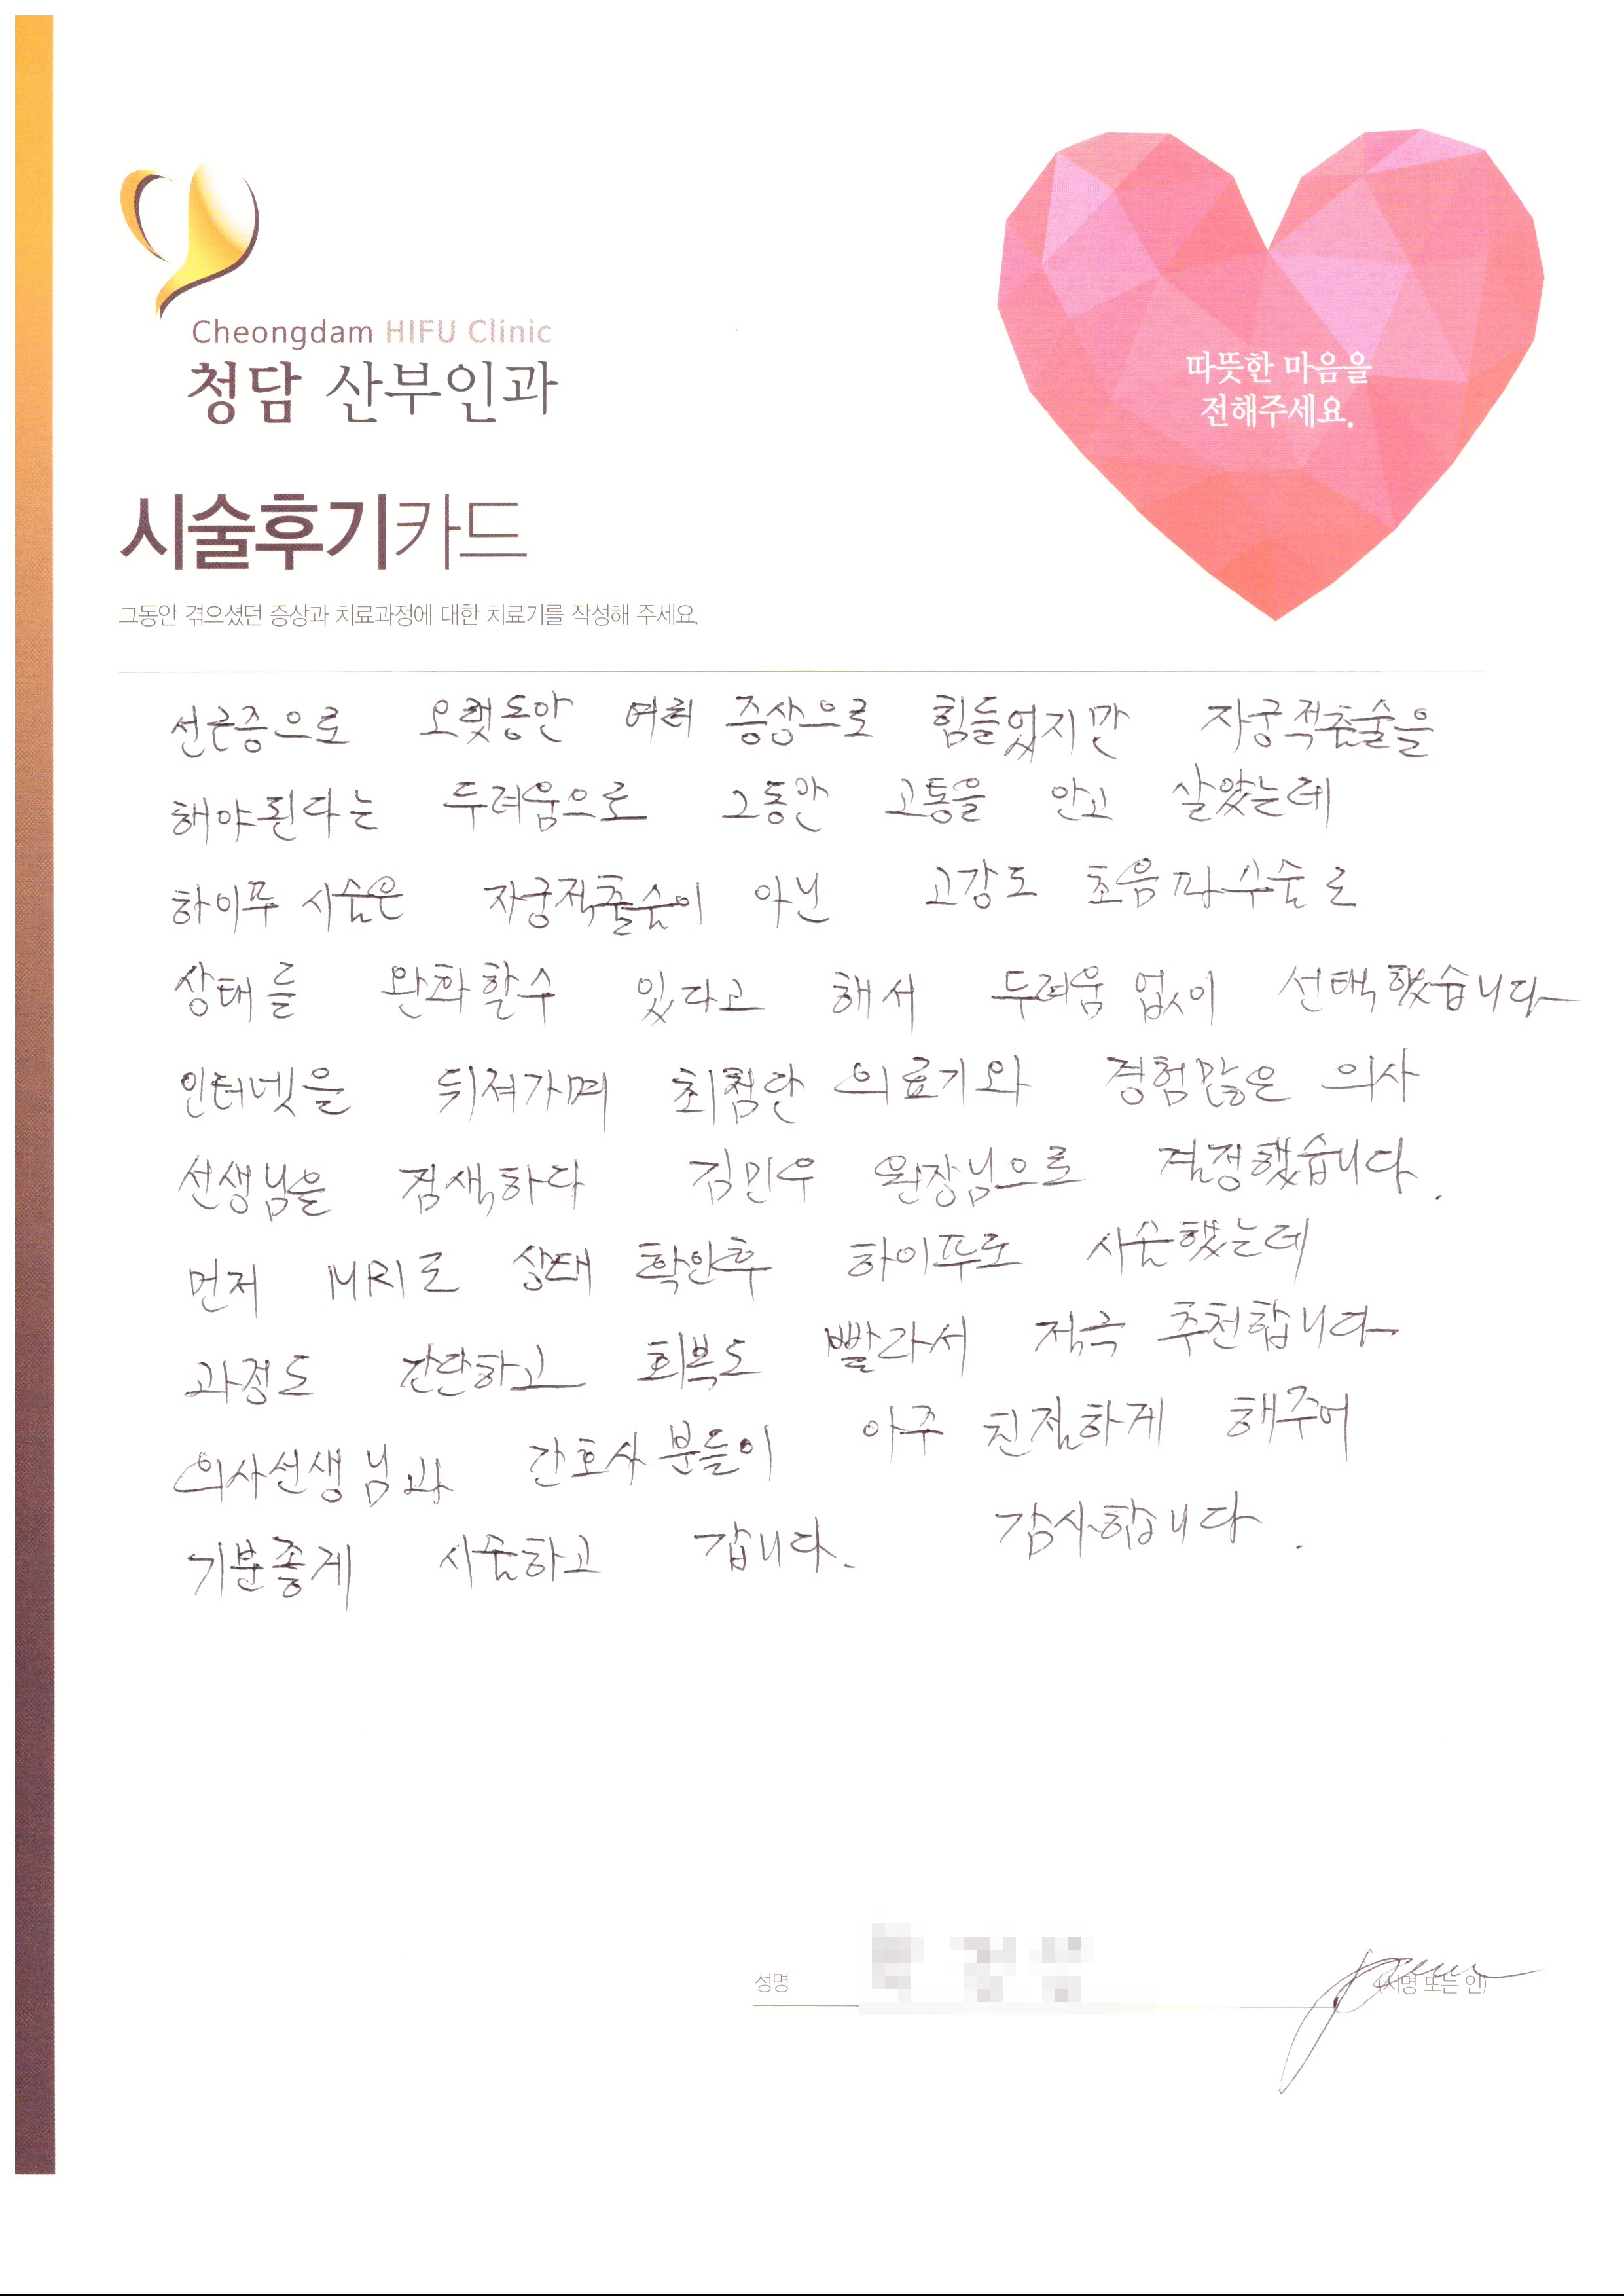 Cheongdam HIFU Clinic
청담 산부인과
따뜻한 마음을
전해주세요.
시술후기카드
그동안 겪으셨던 증상과 치료과정에 대한 치료기를 작성해 주세요.
선근증으로 오랫동안 여러 증상으로 힘들었지만 자궁적출술을
해야된다는 두려움으로 그동안 고통을 안고 살았는데
하이푸 시술은 자궁적출술이 아닌 고강도 초음파수술로
상태를 완화할수 있다고 해서 두려움 없이 선택했습니다
인터넷을 뒤져가며 최첨단 의료기와 경험많은 의사
선생님을 검색하다 김민우 원장님으로 결정했습니다.
먼저 MRI로 상태 확인후 하이푸로 시술했는데
과정도 간단하고 회복도 빨라서 적극 추천합니다
의사선생님과 간호사분들이 아주 친절하게 해주어
기분좋게 시술하고 갑니다. 감사합니다.
성명 (서명 또는 인)